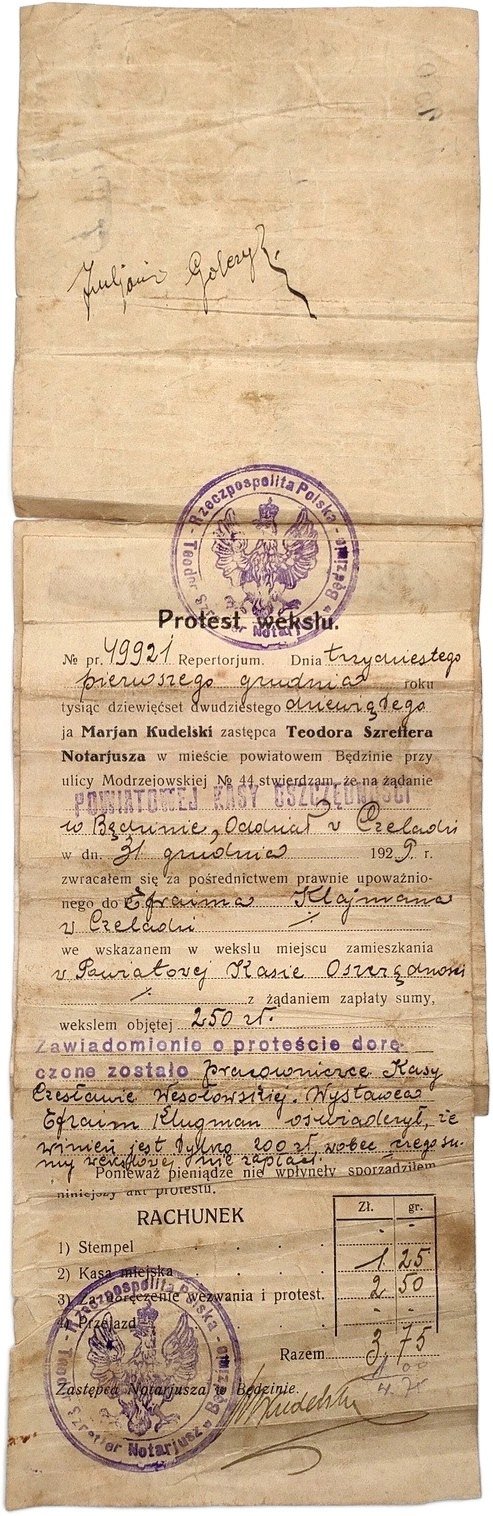 Juljan Golczyk.
Rzeczpospolita Polska - Teodor Szretter Notarjusz w Będzinie
Protest wekslu.
№ pr. 49921 Repertorjum. Dnia trzydziestego
pierwszego grudnia roku
tysiąc dziewięćset dwudziestego dziewiątego
ja Marjan Kudelski zastępca Teodora Szrettera
Notarjusza w mieście powiatowem Będzinie przy
ulicy Modrzejowskiej № 44 stwierdzam, że na żądanie
POWIATOWEJ KASY OSZCZĘDNOŚCI
w Będzinie, Oddział w Czeladzi
w dn. 31 grudnia 1929. r.
zwracałem się za pośrednictwem prawnie upoważnio-
nego do Efraima Klajmana
w Czeladzi
we wskazanem w wekslu miejscu zamieszkania
w Powiatowej Kasie Oszczędności
z żądaniem zapłaty sumy,
wekslem objętej 250 zł.
Zawiadomienie o proteście dorę-
czone zostało Pracowniczce Kasy
Czesławie Wesołowskiej. Wystawca
Efraim Klugman oświadczył, że
winien jest tylko 200 zł, wobec czego su-
my wekslowej nie zapłaci.
Ponieważ pieniądze nie wpłynęły sporządziłem
niniejszy akt protestu.
RACHUNEK Zł. gr.
1) Stempel - -
2) Kasa miejska 1 25
3) Za doręczenie wezwania i protest. 2 50
4) Przejazd - -
Razem 3 75
Zastępca Notarjusza w Będzinie.
Kudelski
Rzeczpospolita Polska - Teodor Szretter Notarjusz w Będzinie